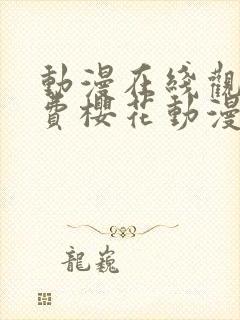 動漫在綫觀
費櫻花動漫
龍巍